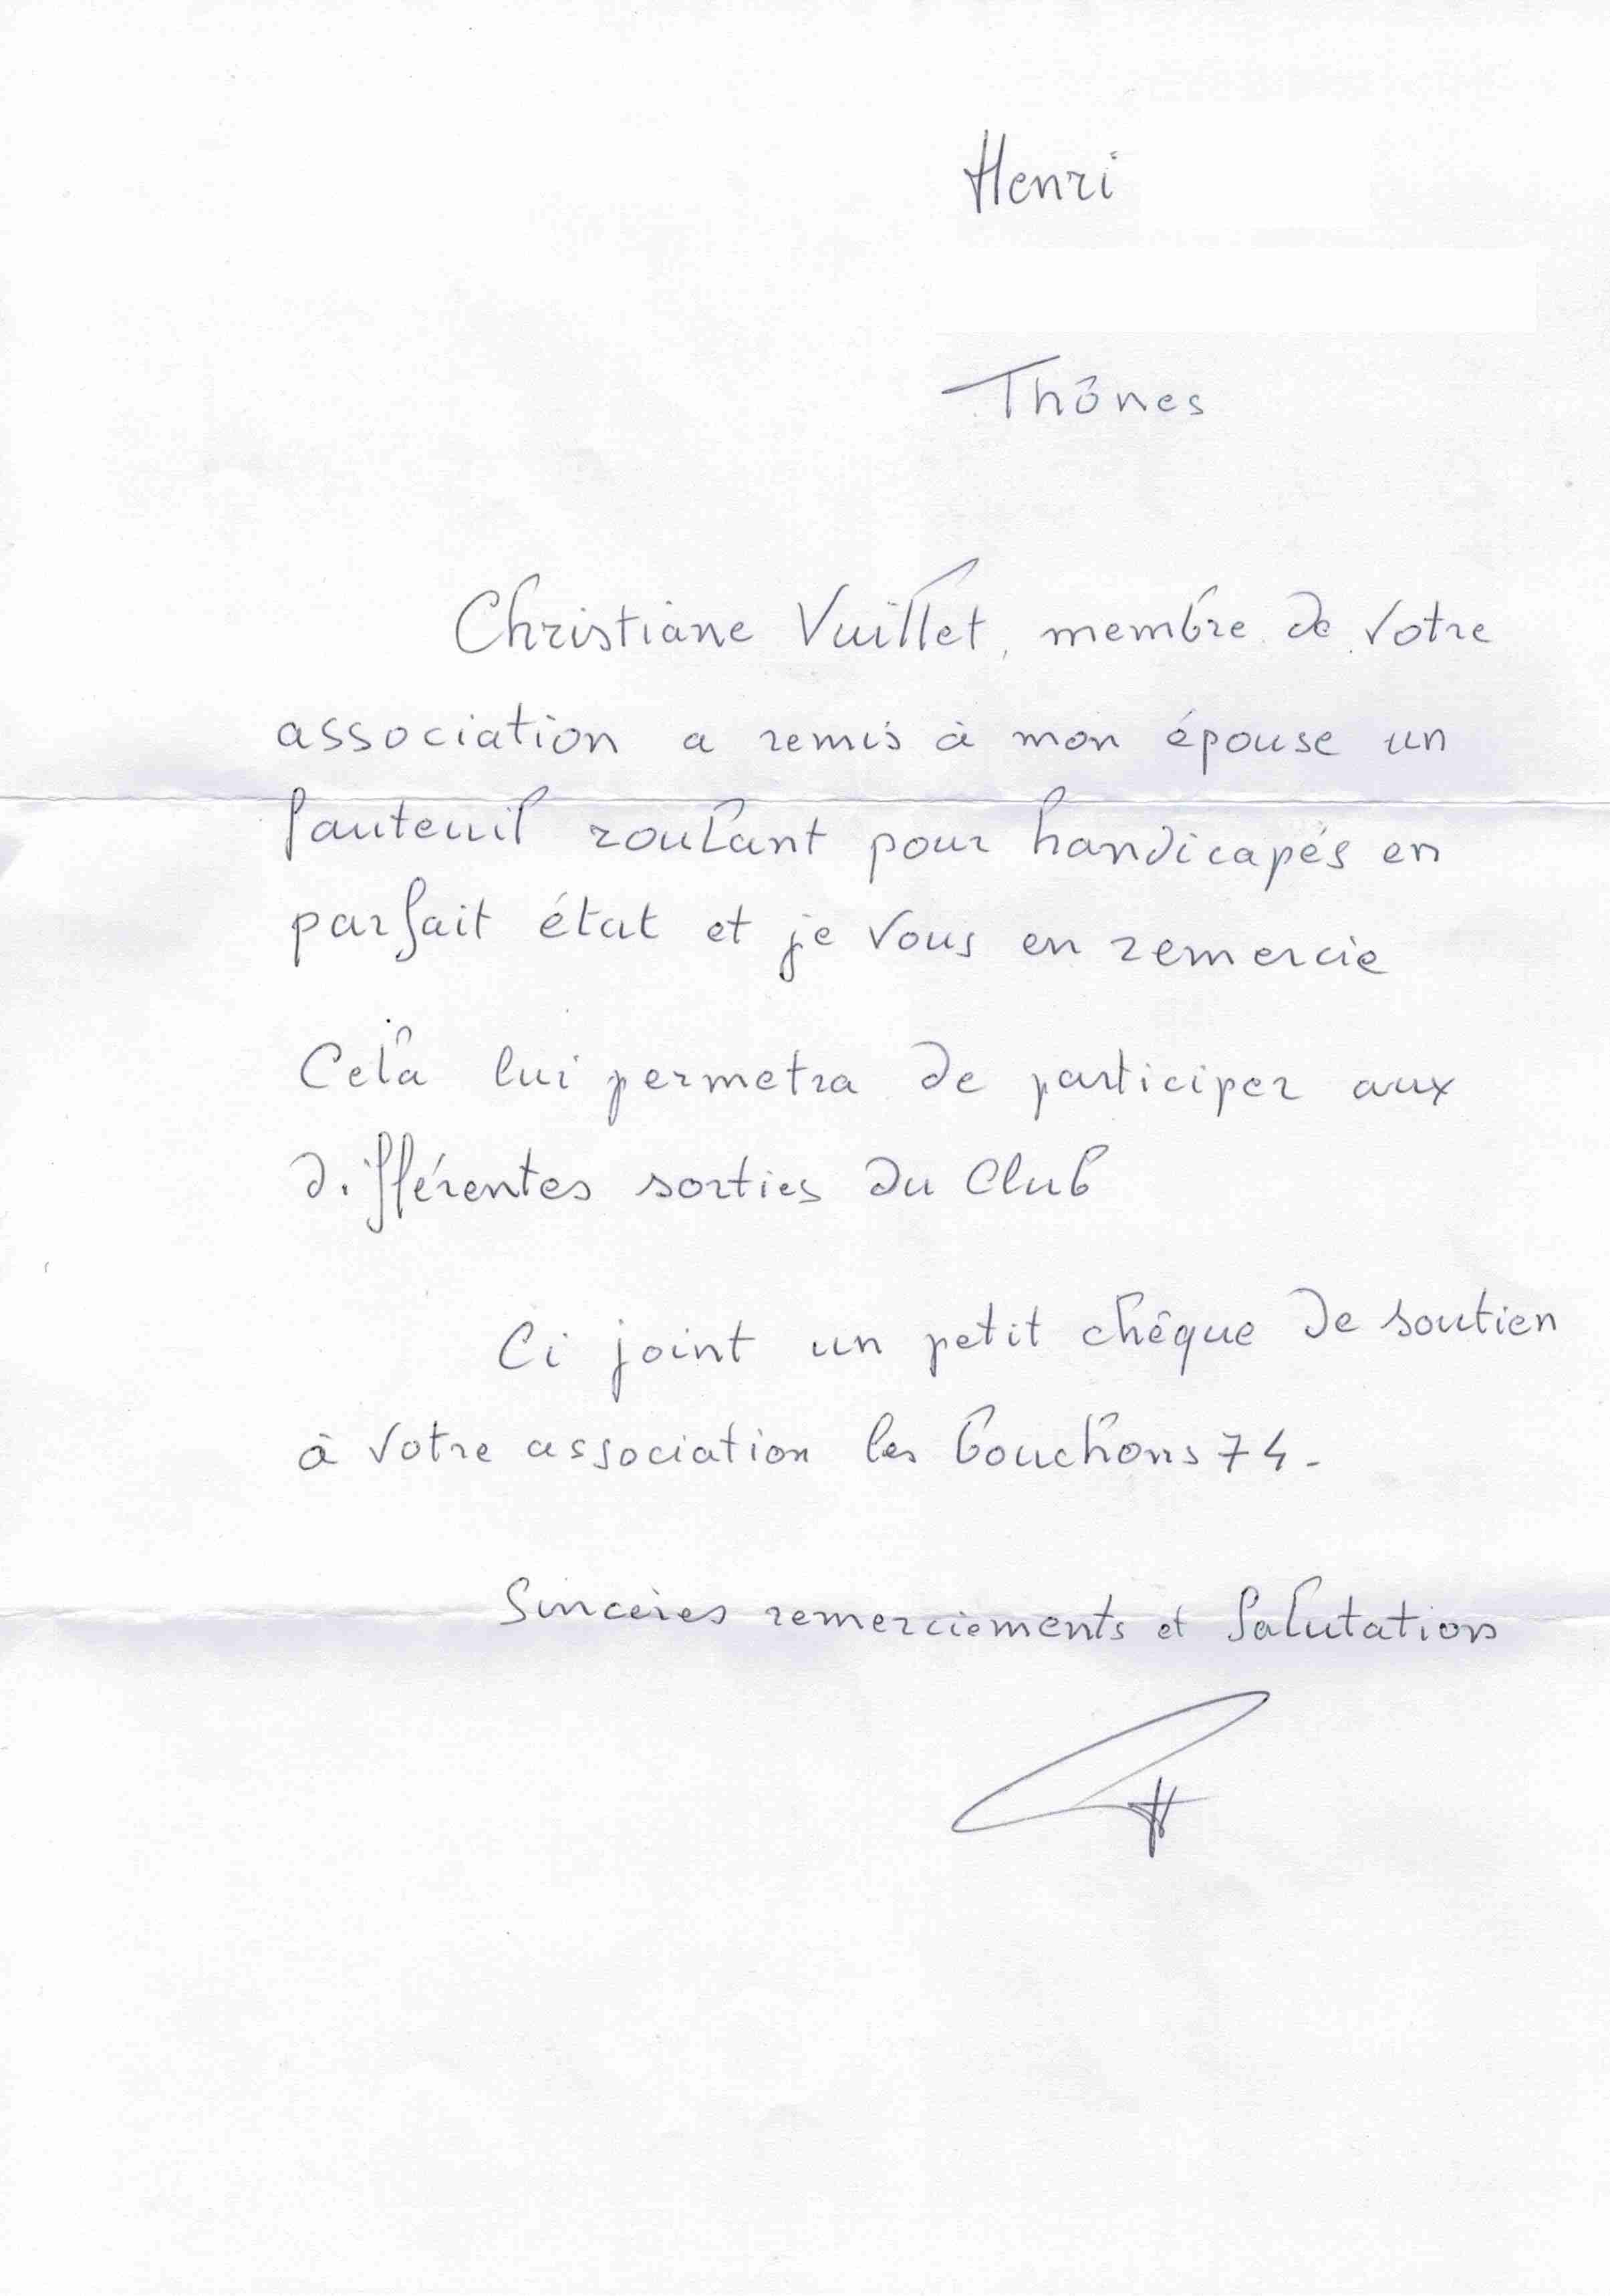 Henri
Thônes
Christiane Vuillet, membre de votre
association a remis à mon épouse un
fauteuil roulant pour handicapés en
parfait état et je vous en remercie
Celà lui permetra de participer aux
différentes sorties du Club
Ci joint un petit chêque de soutien
à votre association les bouchons 74-
Sincères remerciements et Salutations